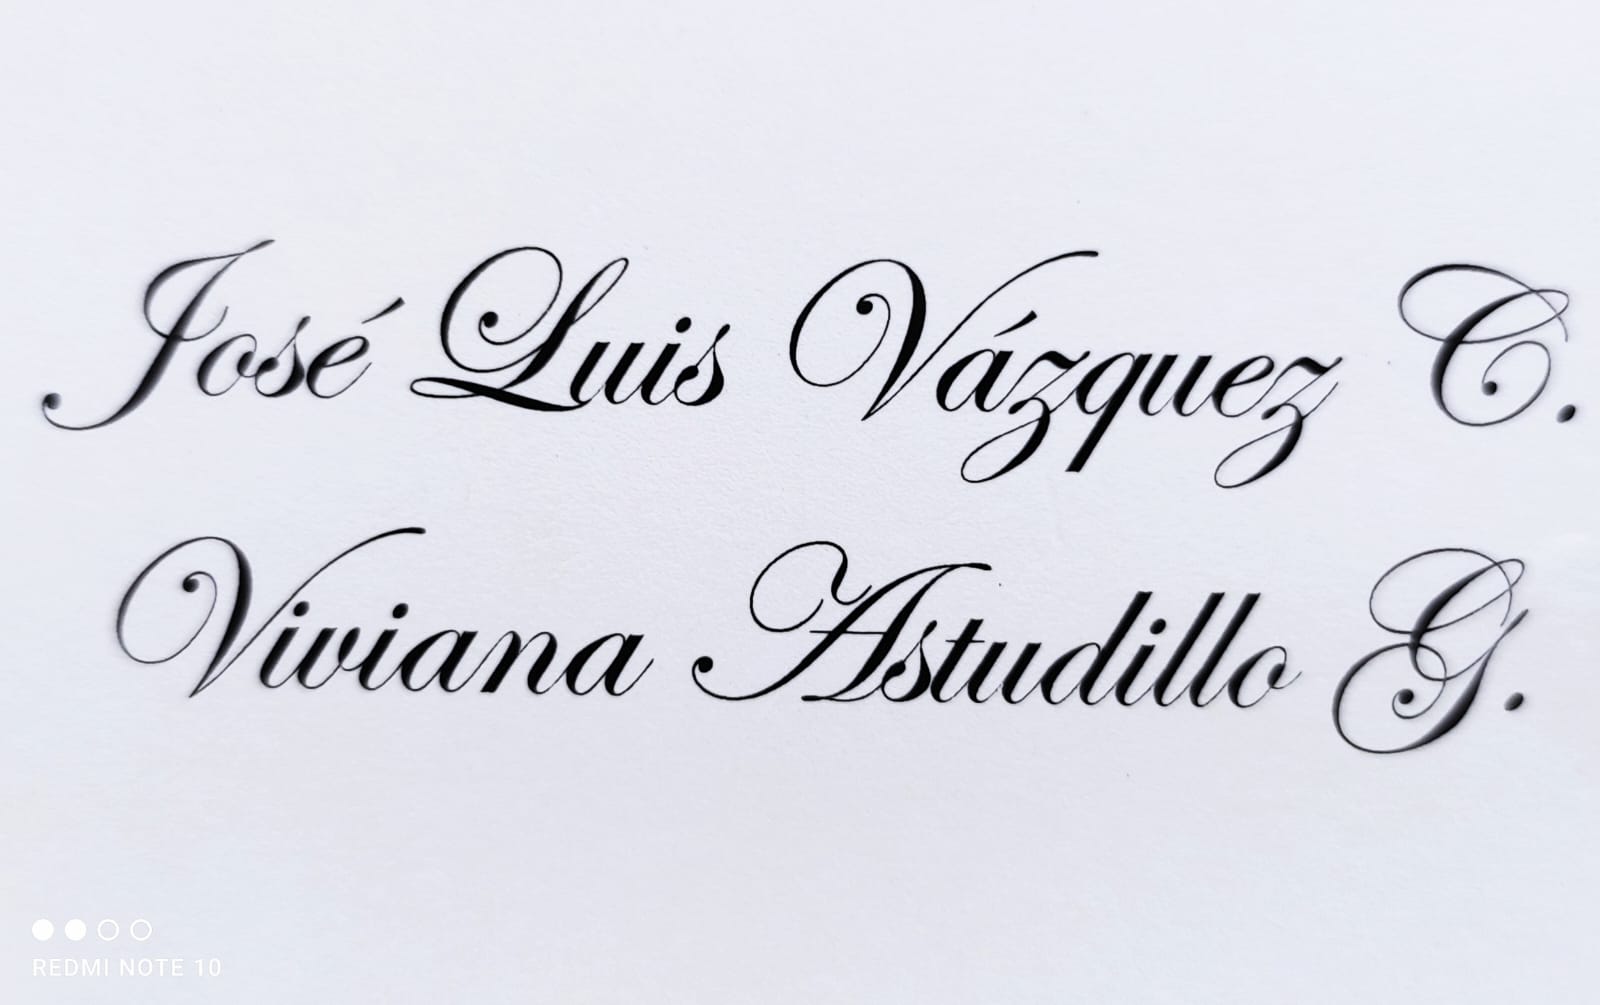 José Luis Vázquez C.
Viviana Astudillo G.
REDMI NOTE 10